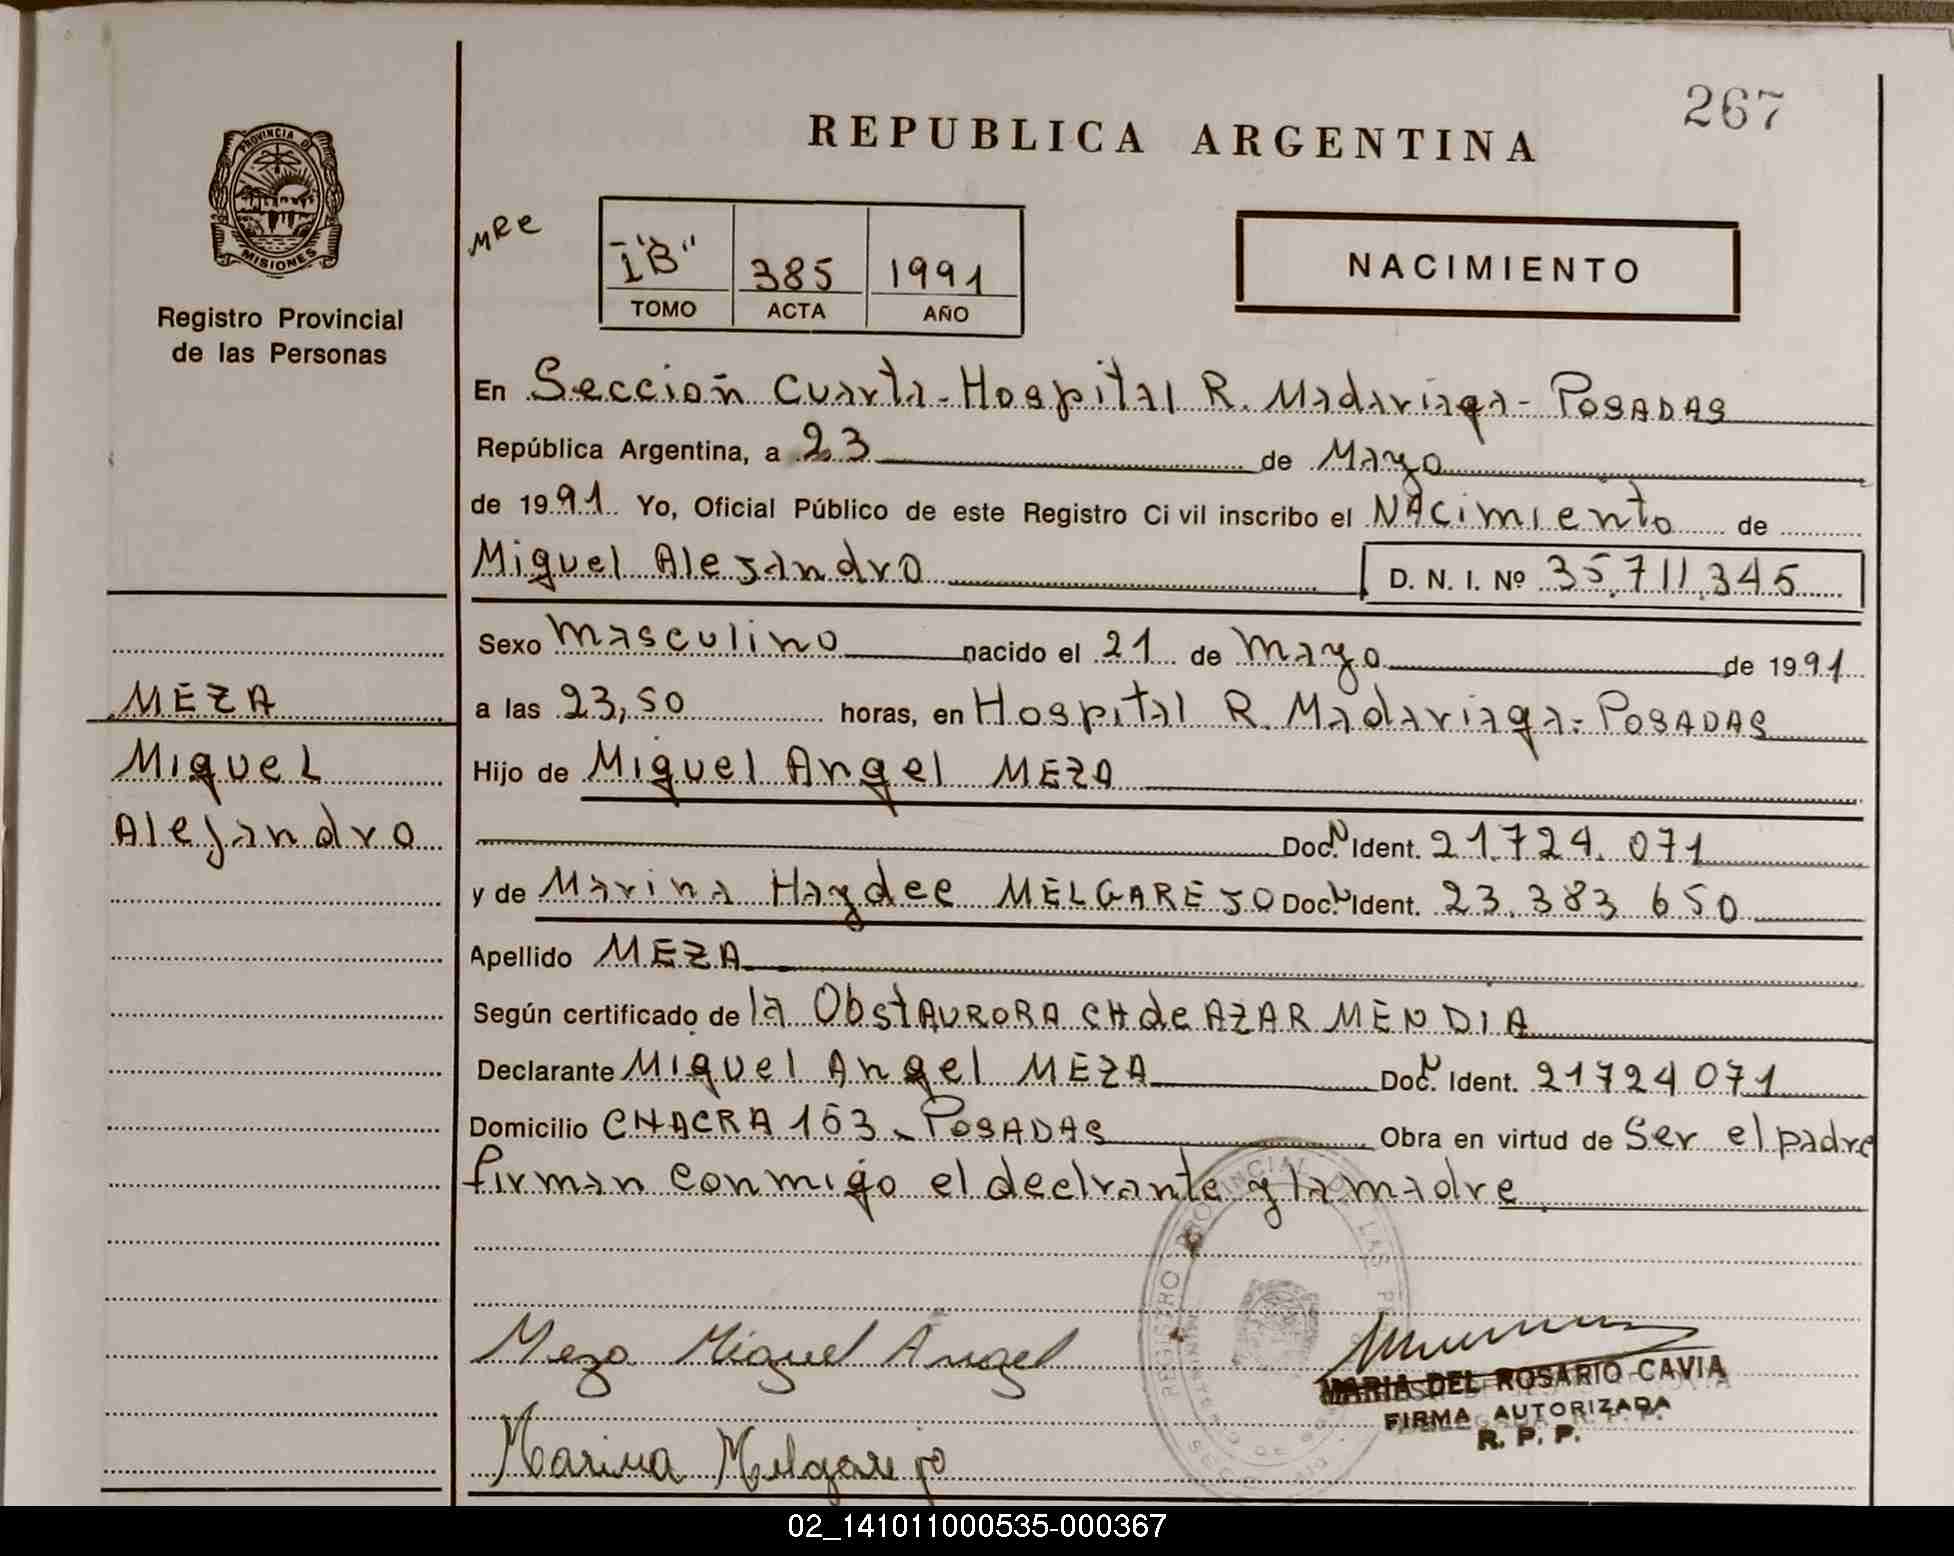 267
REPUBLICA ARGENTINA
PROVINCIA DE
MISIONES
Registro Provincial
de las Personas
MRE
I"B" 385 1991
TOMO ACTA AÑO
NACIMIENTO
En Sección Cuarta - Hospital R. Madariaga - POSADAS
República Argentina, a 23 de Mayo
de 1991 Yo, Oficial Público de este Registro Civil inscribo el NAcimiento de
Miguel Alejandro D. N. I. Nº 35.711.345
Sexo masculino nacido el 21 de mayo de 1991
a las 23,50 horas, en Hospital R. Madariaga - POSADAS
Hijo de Miguel Angel MEZA
Doc. N Ident. 21.724.071
y de Marina Haydee MELGAREJO Doc. N Ident. 23.383.650
Apellido MEZA
Según certificado de la Obst AURORA CH de AZARMENDIA
Declarante Miguel Angel MEZA Doc. N Ident. 21724071
Domicilio CHACRA 163 - POSADAS Obra en virtud de Ser el padre
firman conmigo el declrante y la madre
MEZA
Miguel
Alejandro
Meza Miguel Angel
Marina Melgarejo
MARIA DEL ROSARIO CAVIA
FIRMA AUTORIZADA
R. P. P.
02_141011000535-000367